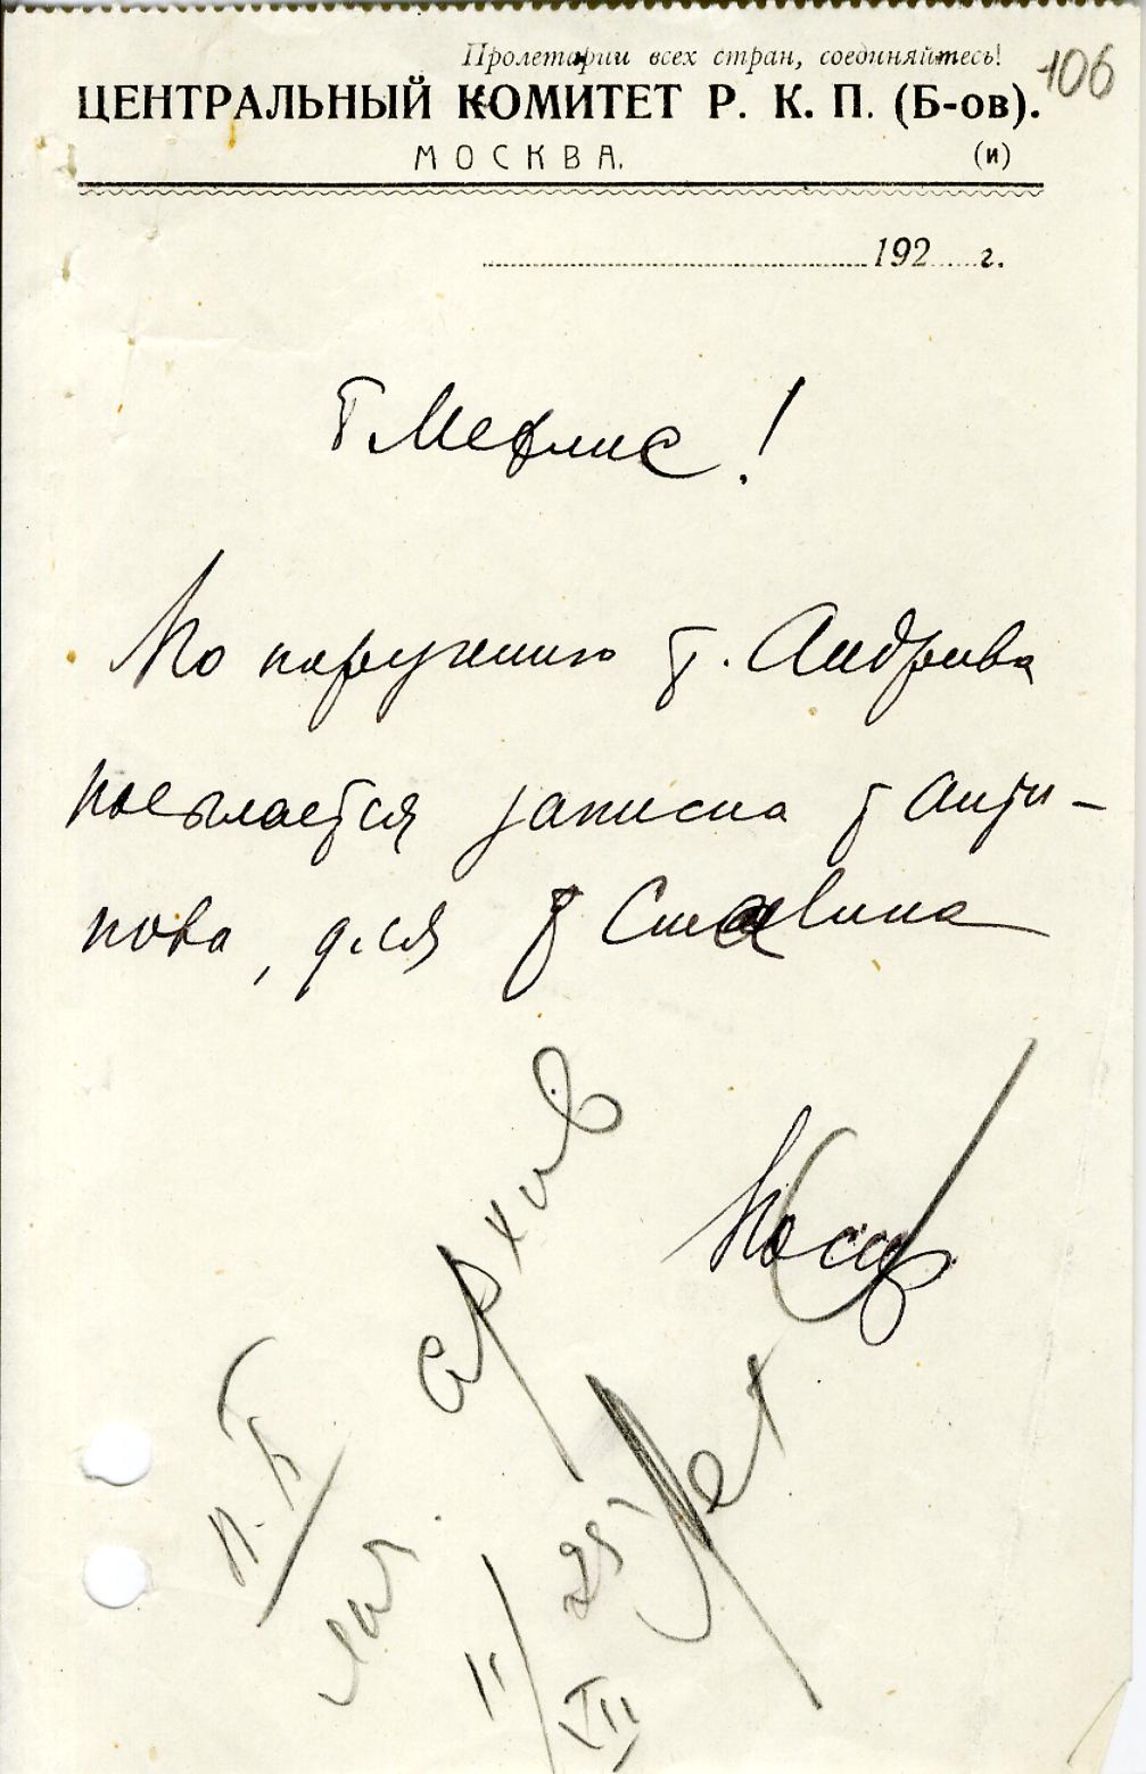 106
Пролетарии всех стран, соединяйтесь!
ЦЕНТРАЛЬНЫЙ КОМИТЕТ Р. К. П. (Б-ов).
МОСКВА. (и)
192 г.
Т Мехлис!
По поручению т. Андреева
посылается записка т Анти-
пова, для т Сталина
архив
11/VII 25